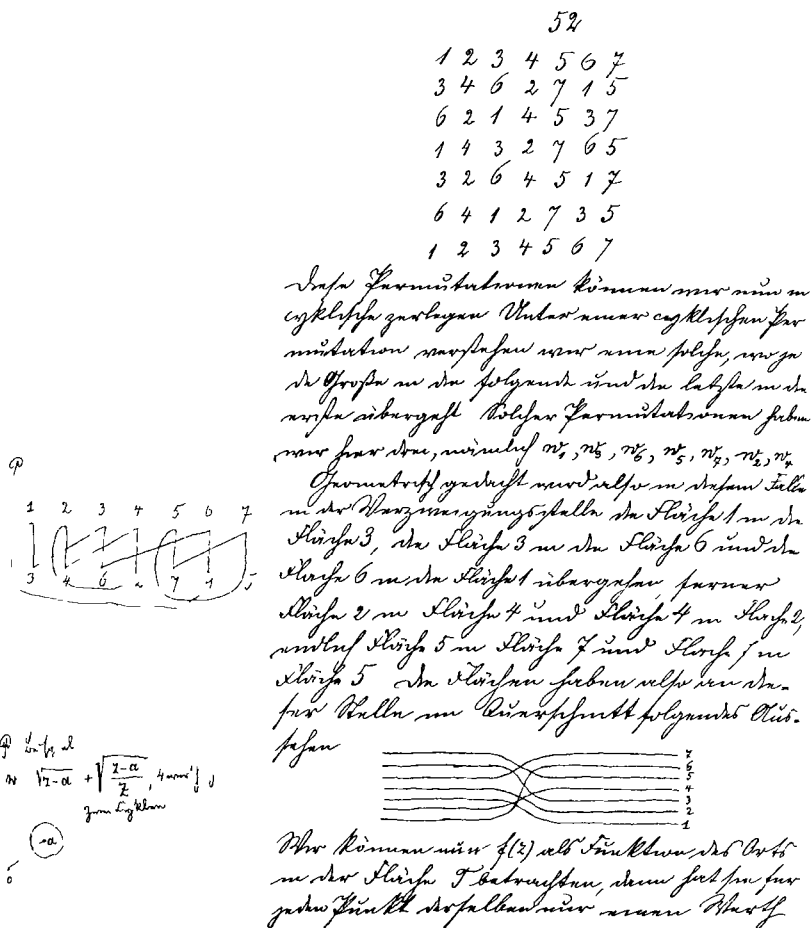 52
1 2 3 4 5 6 7
3 4 6 2 7 1 5
6 2 1 4 5 3 7
1 4 3 2 7 6 5
3 2 6 4 5 1 7
6 4 1 2 7 3 5
1 2 3 4 5 6 7
Diese Permutationen können wir nun in
cyklische zerlegen Unter einer cyklischen Per
mutation verstehen wir eine solche, wo je
de Große in die folgende und die letzte in die
erste übergeht Solcher Permutationen haben
wir hier drei, nämlich w1, w3, w6, w5, w7, w2, w4
Geometrisch gedacht wird also in diesem Falle
in der Verzweigungsstelle die Fläche 1 in die
Fläche 3, die Fläche 3 in die Fläche 6 und die
Flache 6 in die Fläche 1 übergehen, ferner
Fläche 2 in Fläche 4 und Fläche 4 in Flache 2,
endlich Fläche 5 in Fläche 7 und Flache 7 in
Fläche 5 die Flächen haben also an die-
ser Stelle im Querschnitt folgendes Aus-
sehen
7
6
5
4
3
2
1
Wir können nun f(z) als Funktion des Orts
in der Fläche T betrachten, dann hat sie für
jeden Punkt derselben nur einen Werth
1 2 3 4 5 6 7
3 4 6 2 7 1 5
√z-a + √z-a/z, 4
zwei Cyklen
a
0